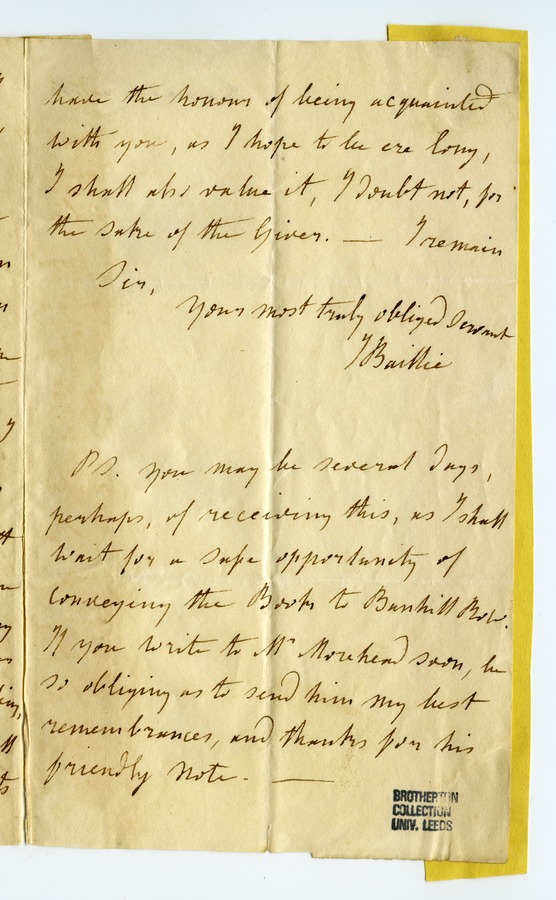 have the honour of being acquainted
with you, as I hope to be ere long,
I shall also value it, I doubt not, for
the sake of the Giver. — I remain
Sir,
Yours most truly obliged Servant
J Baillie
Ps. you may be several days,
perhaps, of receiving this, as I shall
wait for a safe opportunity of
conveying the Books to Bunhill Row.
If you write to Mr Morehead soon, be
so obliging as to send him my best
remembrances, and thanks for his
friendly note. —
BROTHERTON
COLLECTION
UNIV. LEEDS